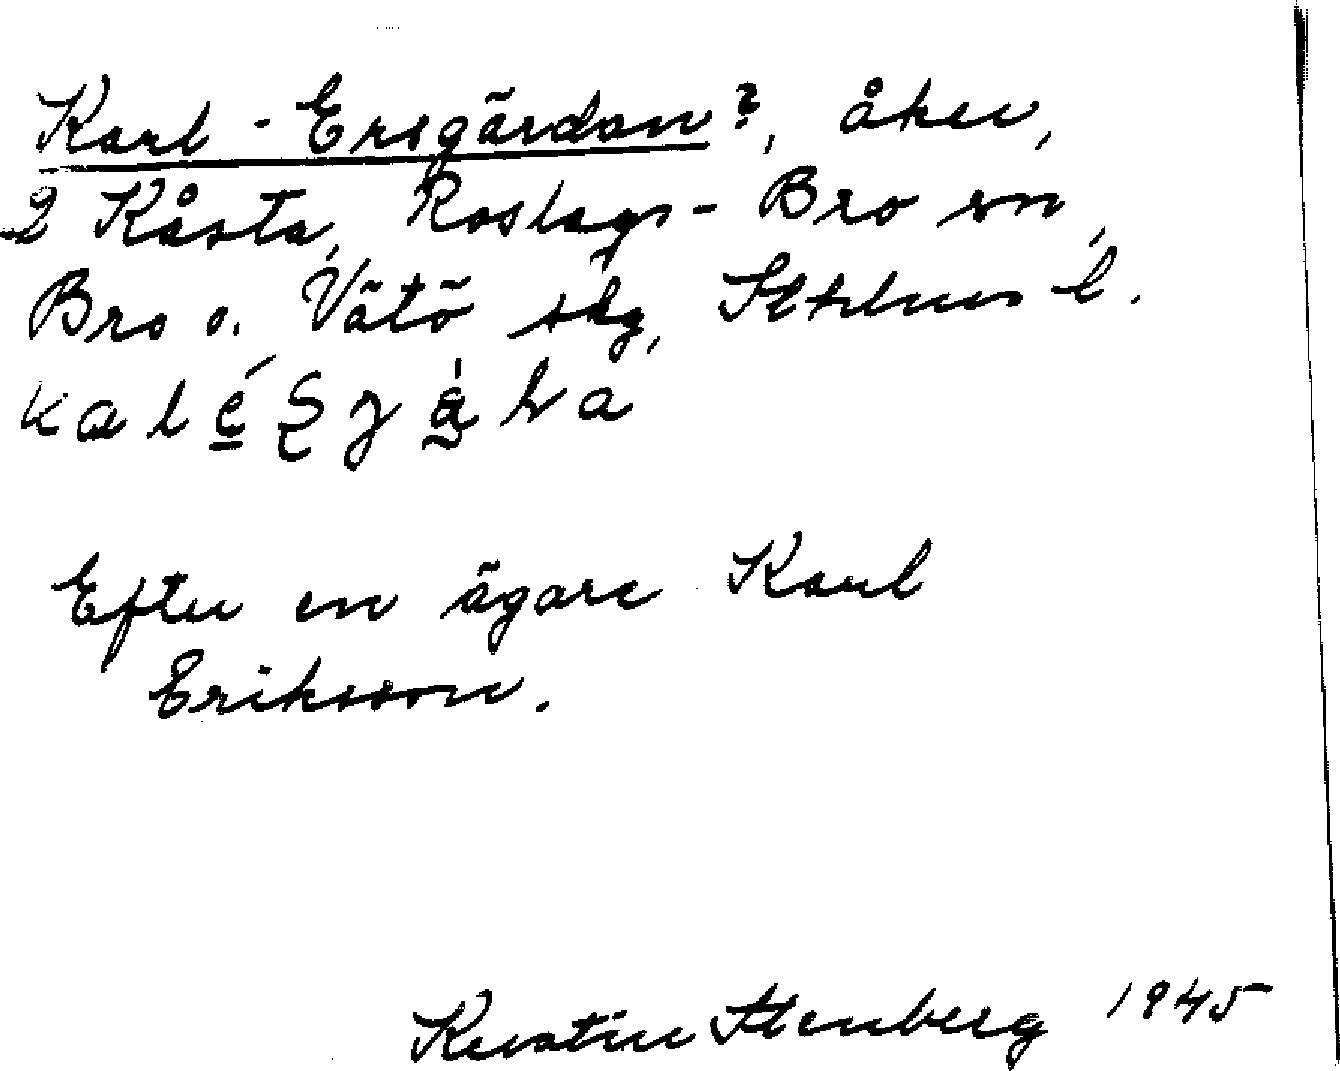 Karl-Ersgärdan?, åker,
2 Kåsta, Roslags-Bro sn,
Bro o. Vätö skg, Sthlms l.
Efter en ägare Karl
Eriksson.
Kerstin Stenberg 1945